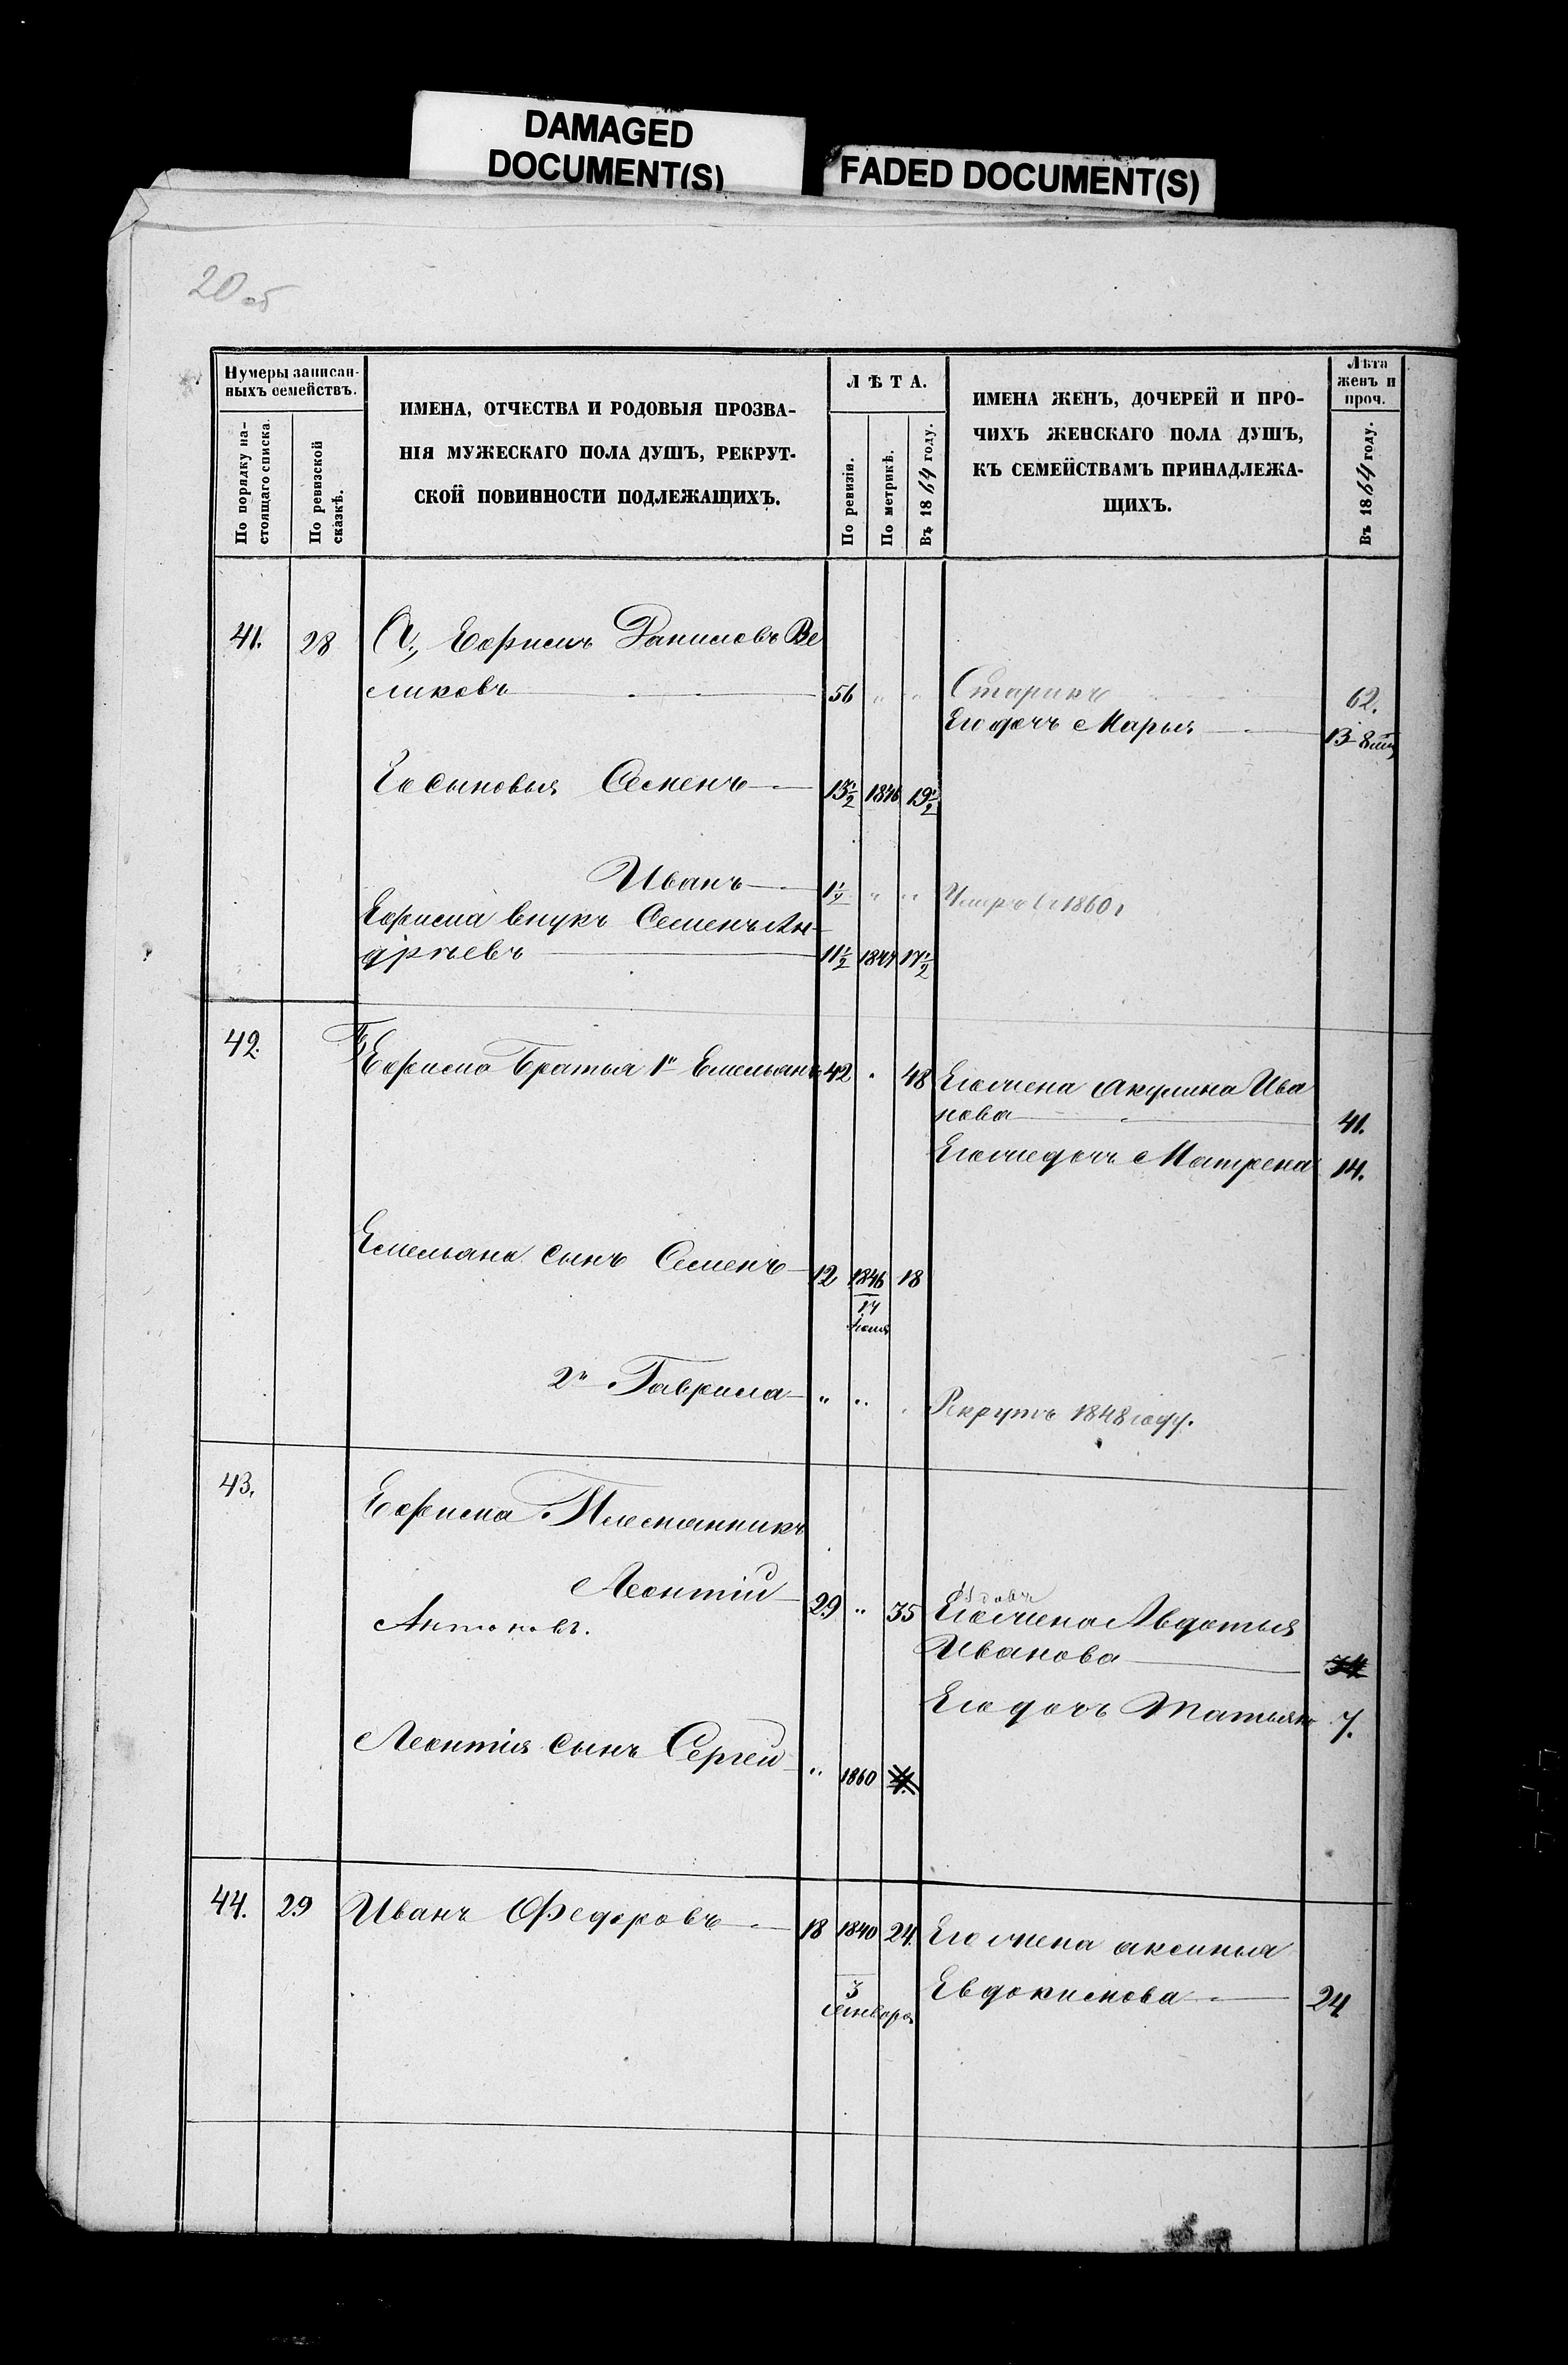 DAMAGED
DOCUMENT(S)
FADED DOCUMENT(S)
20 об
Нумеры записан-
ныхъ семействъ.
По порядку на-
стоящаго списка.
По ревизской
сказкѣ.
ИМЕНА, ОТЧЕСТВА И РОДОВЫЯ ПРОЗВА-
НІЯ МУЖЕСКАГО ПОЛА ДУШЪ, РЕКРУТ-
СКОЙ ПОВИННОСТИ ПОДЛЕЖАЩИХЪ.
ЛѢТА.
По ревизіи.
По метрикѣ.
Въ 1864 году.
ИМЕНА ЖЕНЪ, ДОЧЕРЕЙ И ПРО-
ЧИХЪ ЖЕНСКАГО ПОЛА ДУШЪ,
КЪ СЕМЕЙСТВАМЪ ПРИНАДЛЕЖА-
ЩИХЪ.
Лѣта
женъ и
проч.
Въ 1864 году.
41. 28 А, Ефимъ Даниловъ Ве
ликовъ 56 " " Старикъ 62.
Его дочь Марья 13
Его сыновья Семенъ 13½ 1846 19½
Иванъ 1½ " " Умеръ въ 1860 г
Ефима внукъ Семенъ Ан-
дрѣевъ 11½ 1847 17½
42. Б, Ефима Братья 1й Емельянъ 42 " 48 Его жена Акулина Ива
нова 41.
Его же дочь Матрена 14.
Емельяна сынъ Семенъ 12 1846 18
17
2й Гаврила " " " Рекрутъ 1848 году.
43. Ефима Племянникъ
Леонтій 29 " 35 Его жена Авдотья
Антоновъ. Иванова
Его дочь Татьяна 7.
Леонтія сынъ Сергей " 1860
44. 29 Иванъ Федоровъ 18 1840 24. Его жена аксинья
3 Евдокимова 24
января